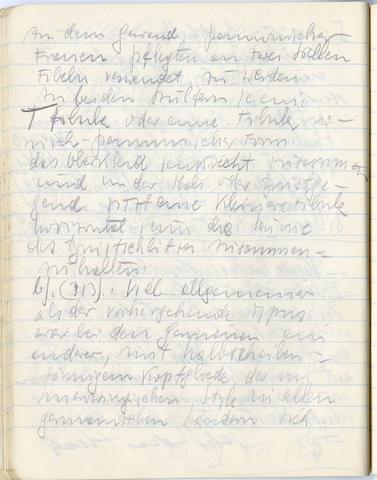 An dem Gewand pannonischer
Frauen pflegten an zwei Stellen
Fibeln verwendet zu werden
An beiden Schultern je eine
Fibula oder eine Fibula no-
risch-pannonischer Form
das Oberkleid senkrecht zusammen
und in der Hals oder Brustge-
gend eine kleinere Fibula
horizontal um die Säume
des Brustschlitzes zusammen-
zuhalten.
b). (31). Viel allgemeiner
als der vorhergehende Typus
war bei den Germanen ein
anderer, mit halbscheiben-
förmigem Kopfgliede, der im
merowingischen Style in allen
germanischen Ländern sich